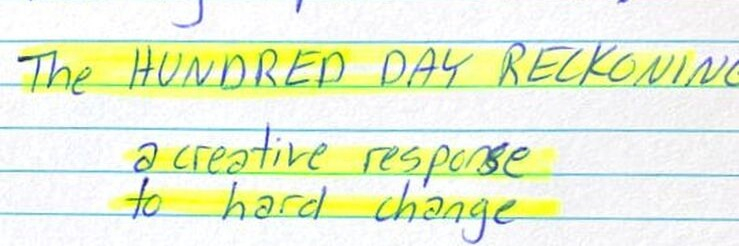 The HUNDRED DAY RECKONING
a creative response
to hard change